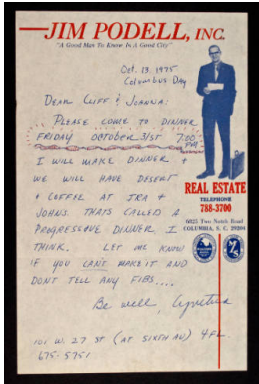 JIM PODELL, INC.
"A Good Man To Know In A Good City"
Oct. 13, 1975
Columbus Day
DEAR CLIFF & JOANNA:
PLEASE COME TO DINNER
FRIDAY OCTOBER 31ST 7:00 PM
I WILL MAKE DINNER &
WE WILL HAVE DESERT
& COFFEE AT JRA &
JOHNS. THATS CALLED A
PROGRESSIVE DINNER I
THINK. LET ME KNOW
IF YOU CANT MAKE IT AND
DONT TELL ANY FIBS....
Be well,
101 W. 27 ST (AT SIXTH AV) 4FL.
675-5751
REAL ESTATE
TELEPHONE
788-3700
6825 Two Notch Road
COLUMBIA, S. C. 29204